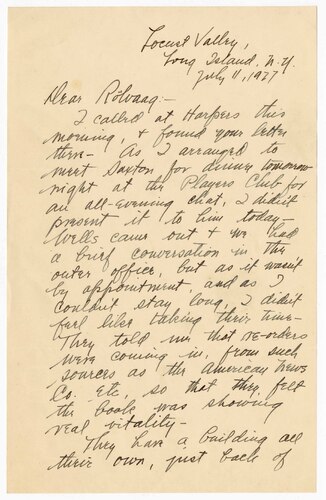 Locust Valley,
Long Island, N.Y.
July 11, 1927
Dear Rölvaag:-
I called at Harpers this
morning, & found your letter
there- As I arranged to
meet Saxton for dinner tomorrow
night at the Players Club for
an all-evening chat, I didn't
present it to him today-
Wells came out & we had
a brief conversation in the
outer office, but as it wasn't
by appointment, and as I
couldn't stay long, I didn't
feel like taking their time-
They told me that re-orders
were coming in, from such
sources as the American News
Co. etc, so that they felt
the book was showing
real vitality-
They have a building all
their own, just back of